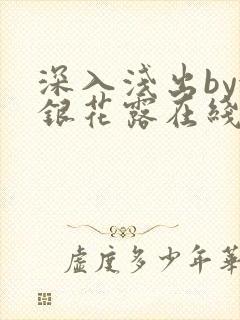 深入浅出by
銀花露在綫
虚度多少年華